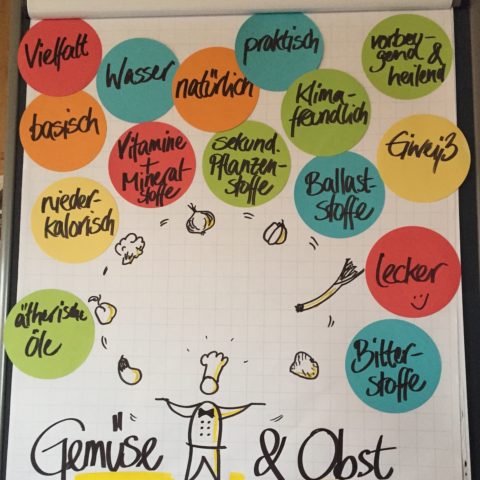 Vielfalt
Wasser
natürlich
praktisch
vorbeu-
gend &
heilend
basisch
Vitamine
+
Mineral-
stoffe
sekund.
Pflanzen-
stoffe
Klima-
freundlich
Eiweiß
nieder-
kalorisch
Ballast-
stoffe
Lecker
ätherische
Öle
Bitter-
stoffe
Gemüse & Obst